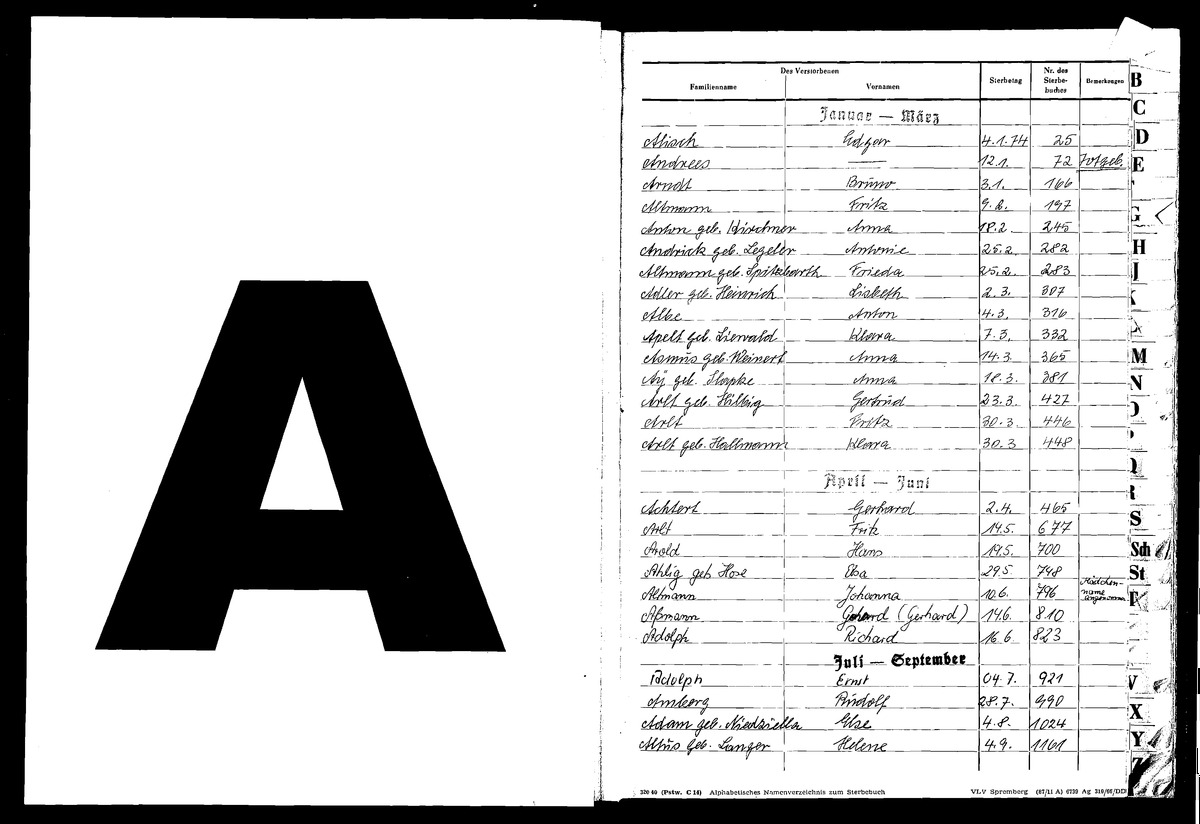 A
Des Verstorbenen
Familienname Vornamen Sterbetag Nr. des Sterbe-buches Bemerkungen
Januar — März
Alisch Edgar 4.1.74 25
Andrees — 12.1. 72 Totgeb.
Arndt Bruno 3.1. 166
Altmann Fritz 9.2. 197
Anton geb. Kirchner Anna 18.2. 245
Andrick geb. Legeler Antonie 25.2. 282
Altmann geb. Spitzbarth Frieda 25.2. 283
Adler geb. Heinrich Lisbeth 2.3. 307
Albe Anton 4.3. 316
Apelt geb. Lierwald Klara 7.3. 332
Asmus geb. Kleinert Anna 14.3. 365
Aÿ geb. Slapke Anna 18.3. 381
Arlt geb. Hilbig Gertrud 23.3. 427
Arlt Fritz 30.3. 446
Arlt geb. Hallmann Klara 30.3 448
April — Juni
Achtert Gerhard 2.4. 465
Arlt Fritz 14.5. 677
Arold Hans 19.5. 700
Ahlig geb. Hose Elsa 29.5. 748
Altmann Johanna 10.6. 796 Mädchen-name angenommen
Aßmann (Gerhard) 14.6. 810
Adolph Richard 16.6 823
Juli — September
Adolph Ernst 04.7. 921
Amberg Rudolf 28.7. 990
Adam geb. Niedziella Else 4.8. 1024
Altus geb. Langer Helene 4.9. 1161
320 40 (Pstw. C 14) Alphabetisches Namenverzeichnis zum Sterbebuch VLV Spremberg (87/11 A) 6739 Ag 310/66/DD
B
C
D
E
G
H
J
M
N
O
Q
R
S
Sch
St
V
X
Y
Z